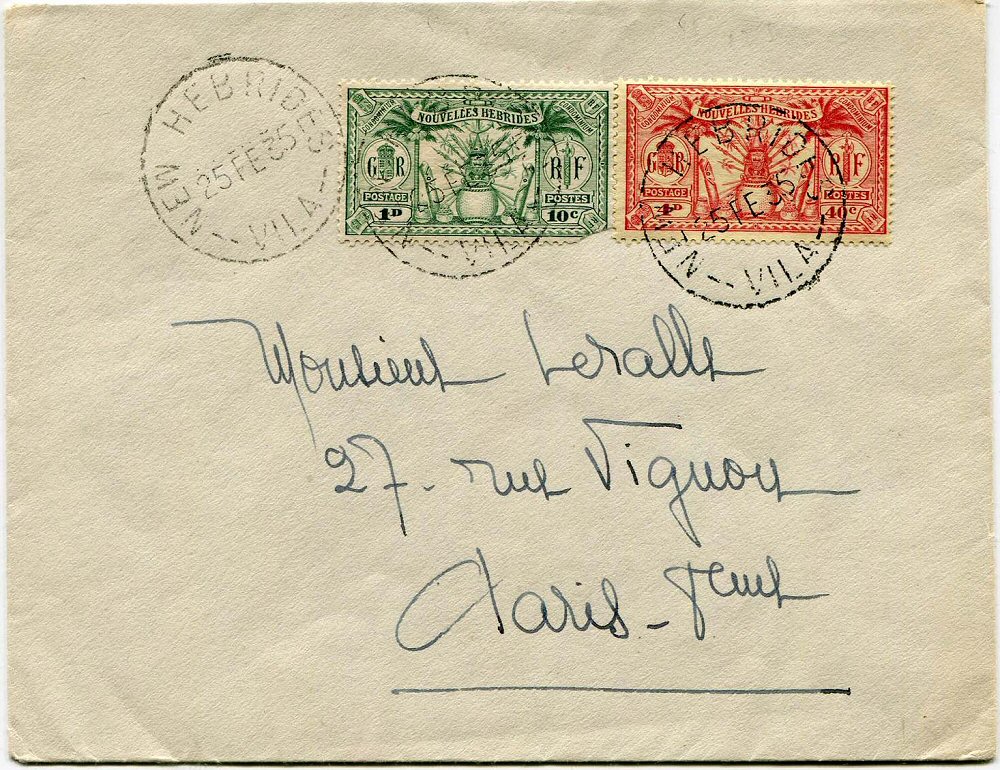 NEW HEBRIDES
25 FE 35
VILA
CONDOMINIUM
NOUVELLES HEBRIDES
CONDOMINIUM
G R
R F
POSTAGE
POSTES
1D
10c
NEW HEBRIDES
25 FE 35
VILA
NOUVELLES HEBRIDES
CONDOMINIUM
G R
R F
POSTAGE
POSTES
4D
40c
NEW HEBRIDES
25 FE 35
VILA
Monsieur Leralle
27. rue Vignon
Paris